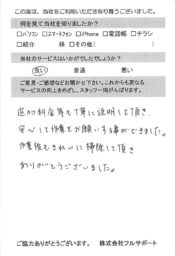 この度は、当社をご利用いただき有り難うございました。
何を見て当社を知りましたか？
□パソコン □スマートフォン □iPhone □電話帳 □チラシ
□紹介 様 □その他( )
当社のサービスはいかがでしたでしょうか？
良い 普通 悪い
ご意見・ご感想などお聞かせ下さい。これからも更なる
サービスの向上をめざし、スタッフ一同がんばります。
追加料金等も丁寧に説明して頂き、
安心して作業をお願いする事ができました。
作業後もきれいに掃除して頂き
ありがとうございました。
ご協力ありがとうございます。 株式会社フルサポート